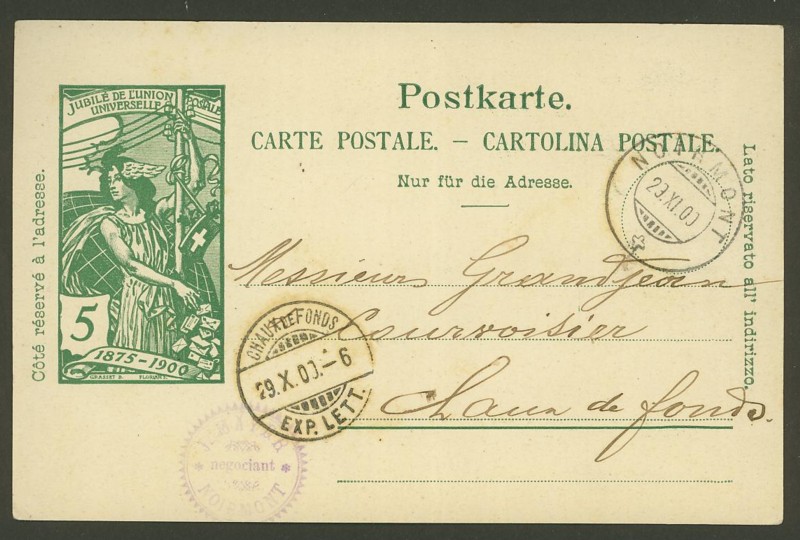 JUBILÉ DE L'UNION
UNIVERSELLE POSTALE
5
1875-1900
GRASSET D. FLORIAN S.
Côté réservé à l'adresse.
Postkarte.
CARTE POSTALE. – CARTOLINA POSTALE.
Nur für die Adresse.
Lato riservato all' indirizzo.
NOIRMONT
29.XI.00
Messieurs Grandjean
Courvoisier
Chaux de fonds.
CHAUX-DE-FONDS
29.X.00.-6
EXP. LETT.
négociant
NOIRMONT